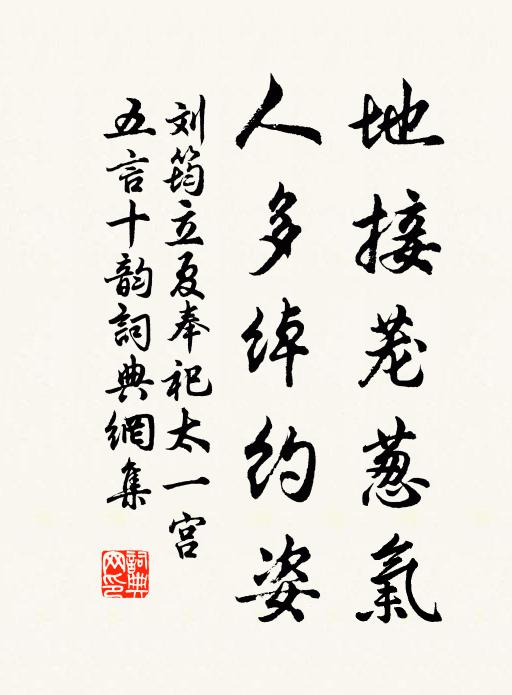 地接茏葱氣
人多绰约姿
刘筠立夏奉祀太一宫
五言十韵詞典網集
詞典
网印